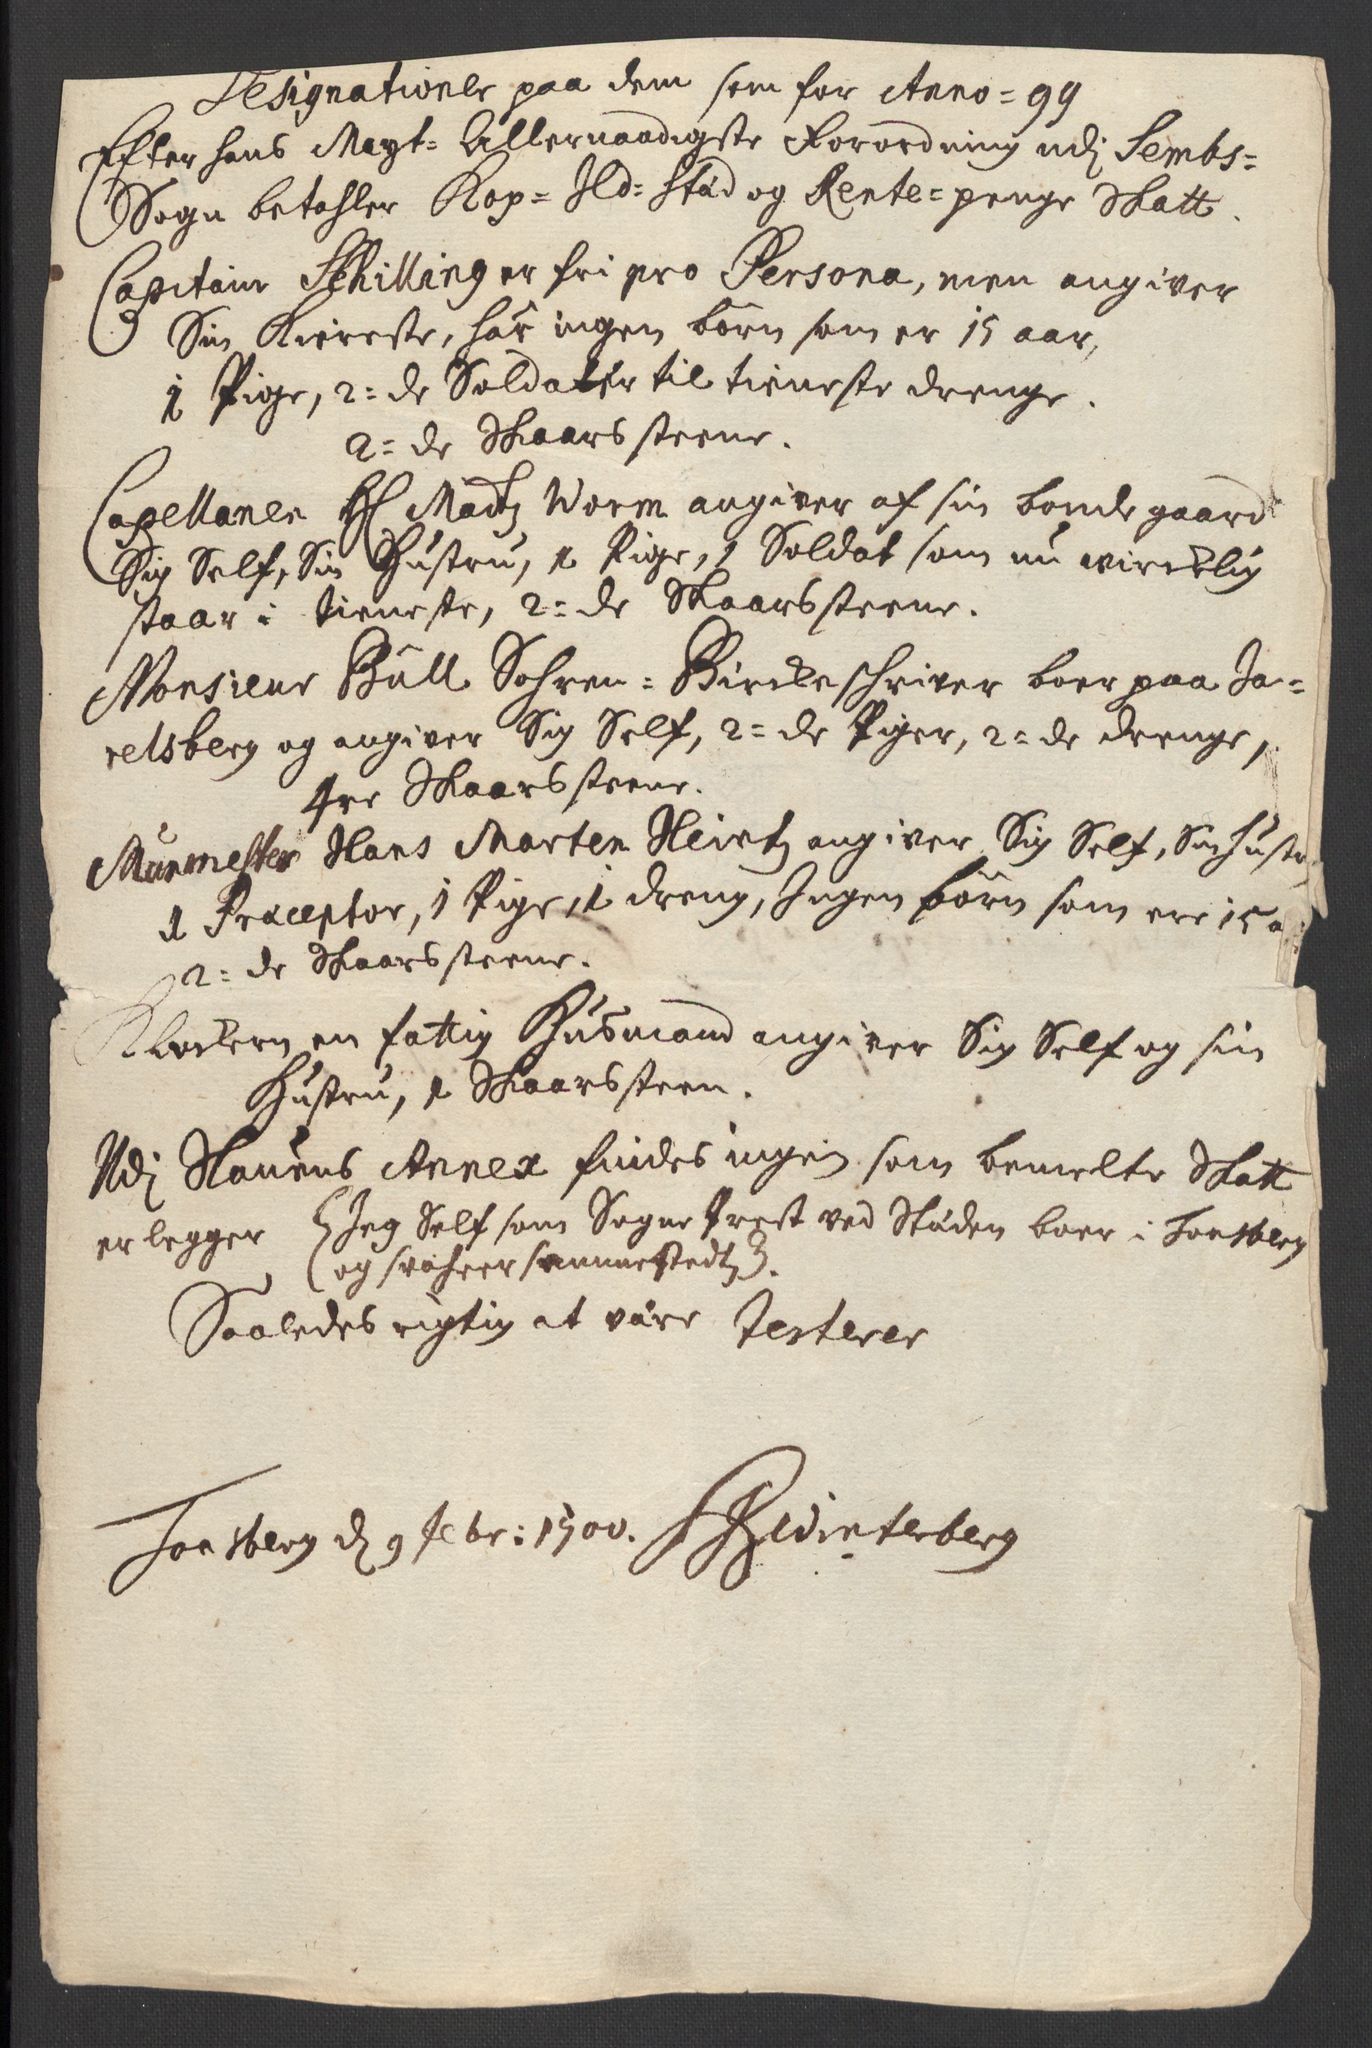 Designationer paa dem som for Anno = 99
Efter hans Mayt: Allernaadigste Forordning udj Sembs=
Sogn betahler Kop= Ild= stæd og Rente= penge Skatt.
Capitain Schilling er fri pro Persona, men angiver
Sin Kiereste, har ingen børn som er 15 aar,
1 Pige, 2=de Soldater til tieneste drenge.
2=de Skaarsteene.
Capellanen Hr Madtz Worm angiver af sin bondegaard
Sig Self, Sin Hustru, 1 Pige, 1 Soldat som nu wircklig
staar i tieneste, 2=de Skaarsteene.
Monsieur Bull Sohren= Birckeschriver boer paa Ja=
relsberg og angiver Sig Self, 2=de Piger, 2=de drenge,
4re Skaarsteene.
Murmester Hans Marten Heintz angiver Sig Self, Sin Hustr
1 Præceptor, 1 Pige, 1 dreng, Ingen børn som ere 15 a
2=de Skaarsteene.
Klockern en fattig Huusmand angiver Sig Self og sin
Hustru, 1 Skaarsteen.
Udj Slauens Annex findes ingen som bemelte Skatt
erlegger (Jeg Self som Sogne Prest ved Stæden boer i Tonsberg
og svahrer sammestedtz).
Saaledes rigtig at være Testerer
Tonsberg d 9 febr: 1700. Winterberg